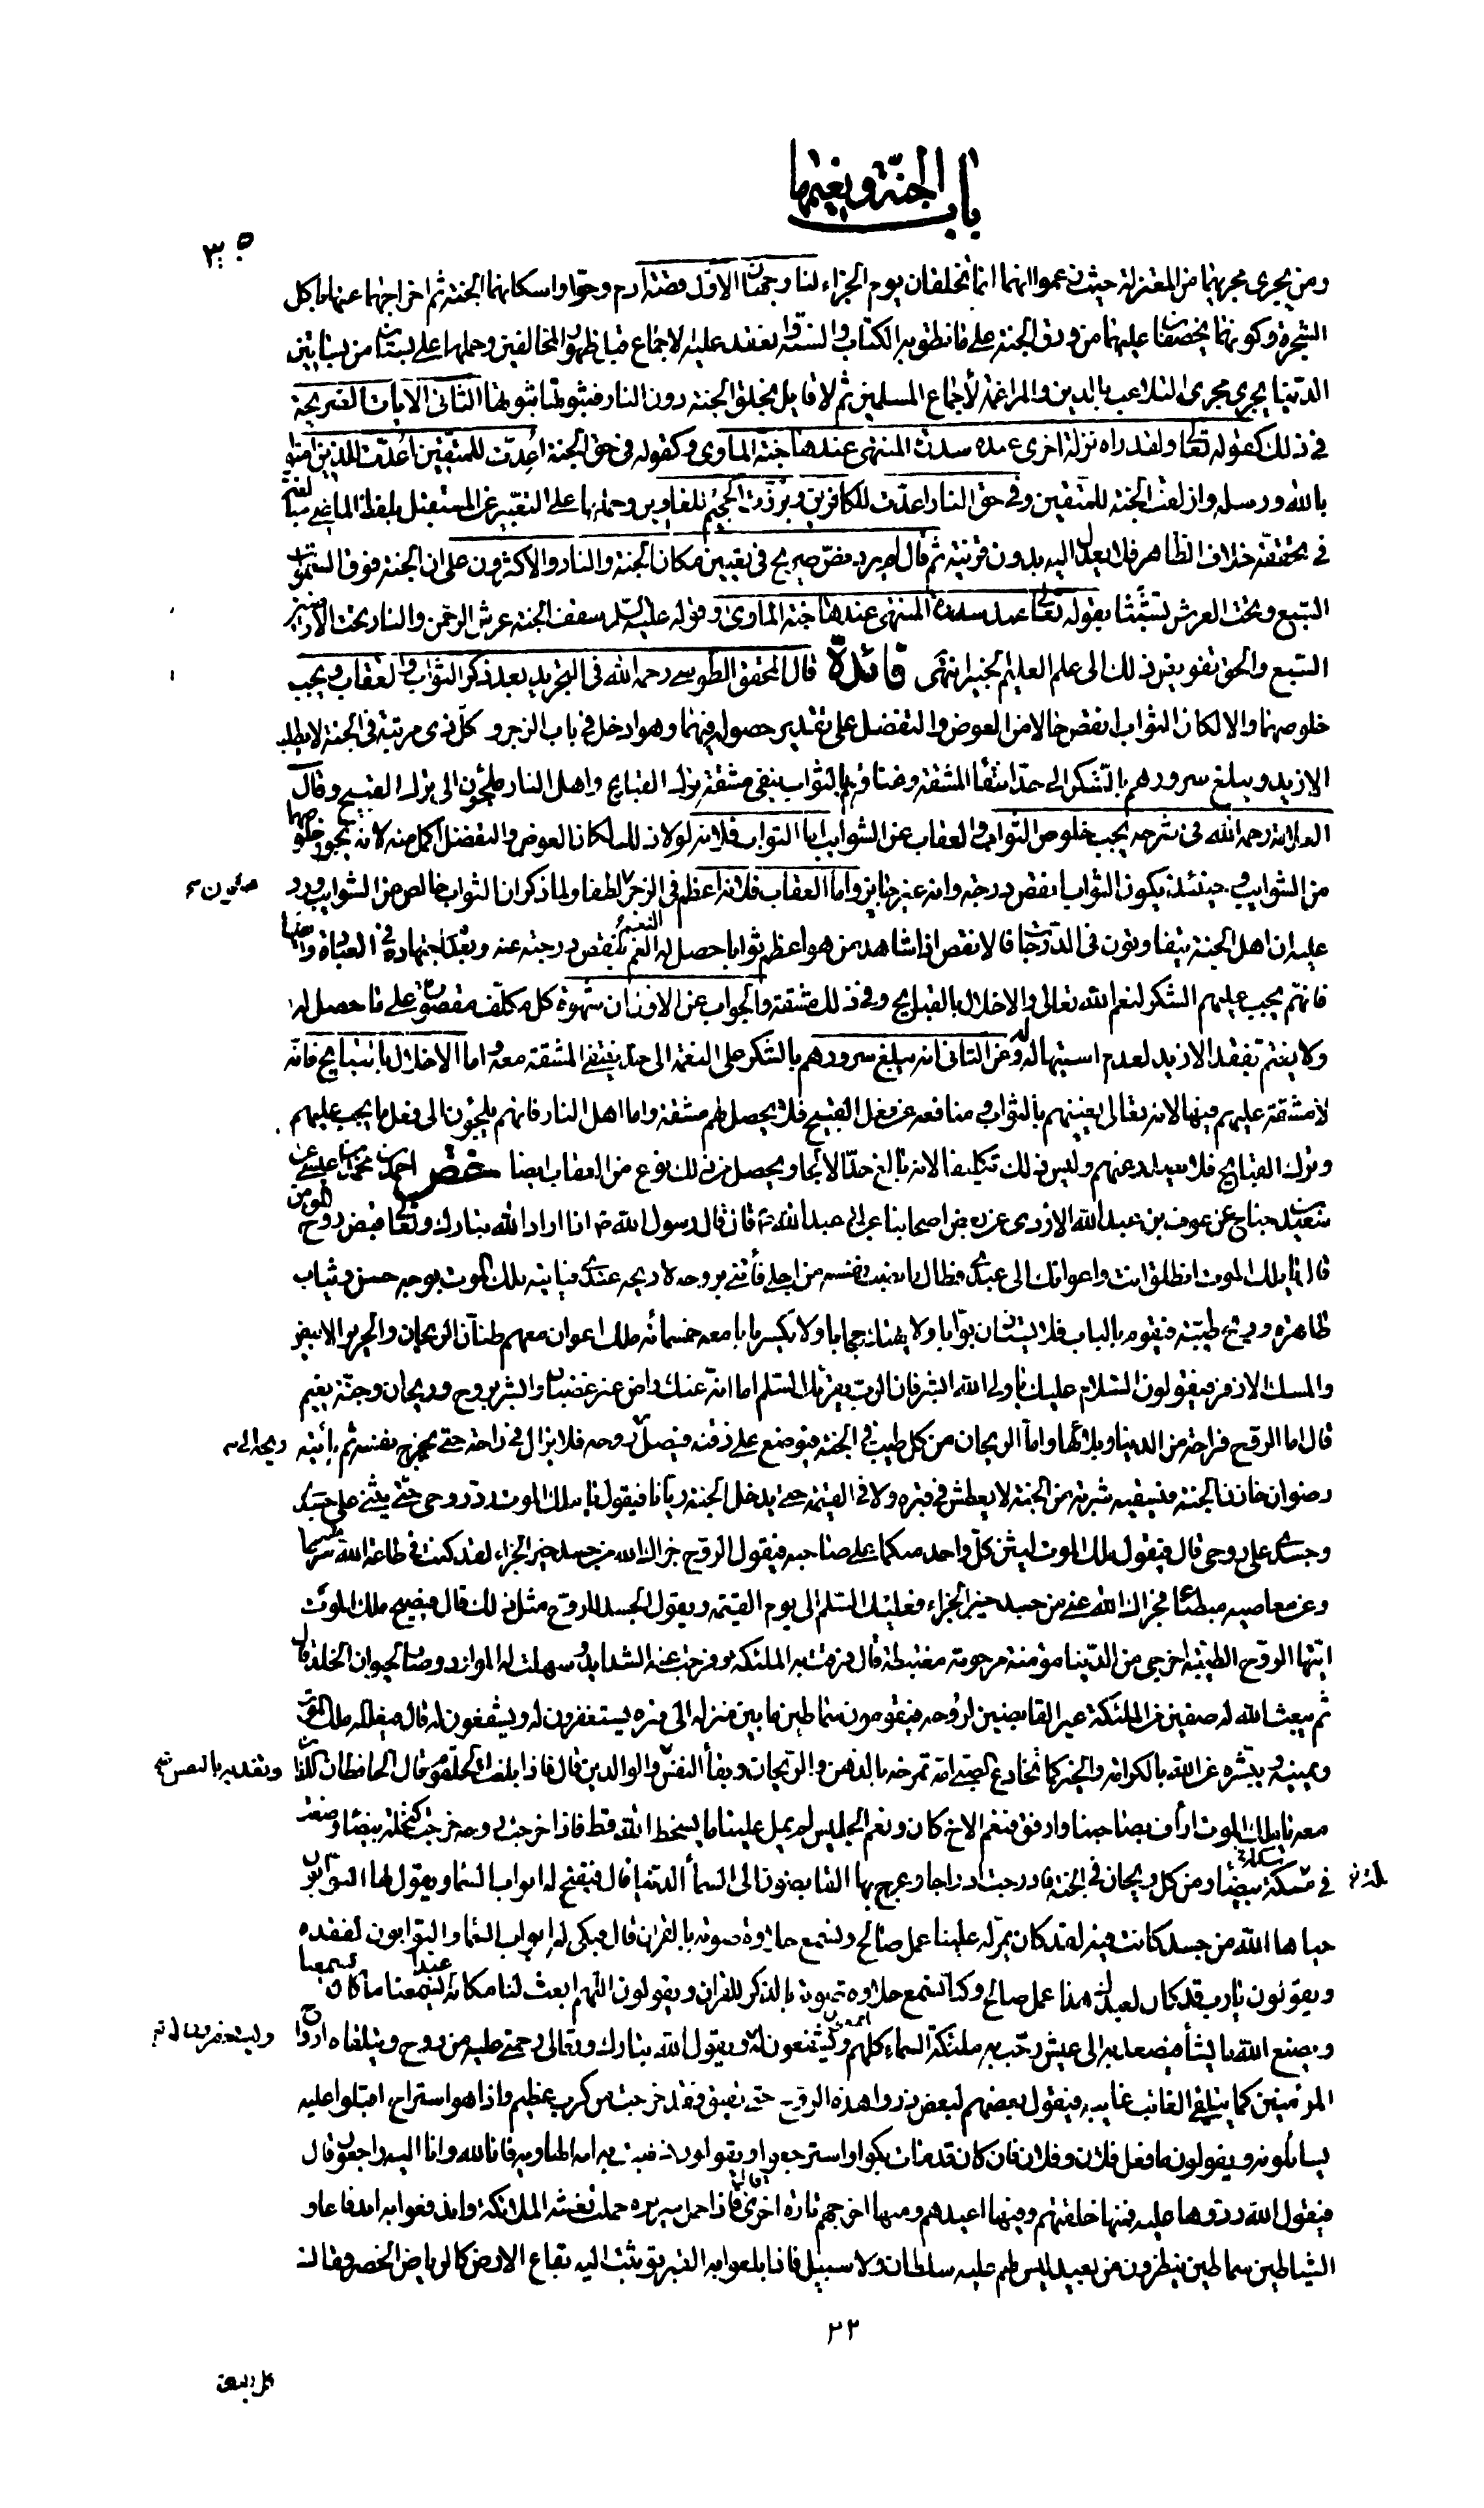 باب الجنّة ونعيمها
٣٠٥
ومن يجرى مجريهما من المعتزلة حيث زعموا انهما انما تخلقان يوم الجزاء لنا وجهان الاوّل قصّة ادم وحوّا واسكانهما الجنّة ثم اخراجهما عنها باكل
الشجرة وكونهما يخصفان عليهما من ورق الجنة على ما نطق به الكتاب والسنّة وانعقد عليه الاجماع قبل ظهور المخالفين وحملها على بستان من بساتين
الدّنيا يجرى مجرى التلاعب بالدين والمراغمة لأجماع المسلمين ثم لا قايل بخلق الجنة دون النار فثبوتها ثبوتها الثانى الايات الصّريحة
فى ذلك كقوله تعالى ولقد راه نزلة اخرى عند سدرة المنتهى عندها جنّة المأوى وكقوله فى حق الجنة اُعِدّت للمتّقين اُعدّت للذين امنوا
بالله ورسله وازلفت الجنة للمتّقين وفى حق النار اعدّت للكافرين وبرّزت الجحيم للغاوين وحملها على التعبير عن المستقبل بلفظ الماضى مبالغة
فى تحقّقه خلاف الظاهر فلا يعدل اليه بدون قرينة ثم قال لم يرد نصّ صريح فى تعيين مكان الجنة والنار والاكثرون على ان الجنة فوق السّموات
السّبع وتحت العرش تشبّثا بقوله تعالى عند سدرة المنتهى عندها جنة المأوى وقوله عليه السّلم سقف الجنة عرش الرحمن والنار تحت الأرضين
السّبع والحق تفويض ذلك الى علم العليم الخبير انتهى فائدة قال المحقق الطوسى رحمه الله فى التجريد بعد ذكر الثواب والعقاب ويجب
خلوصهما والا لكان الثواب انقص حالا من العوض والتفضل على تقدير حصوله فيهما وهو ادخل فى باب الزجر وكلّ ذى مرتبة فى الجنة لا يطلب
الازيد ويبلغ سرورهم بالشّكر الى حدّ انتفاء المشقة وغناؤهم بالثواب ينفى مشقة ترك القبايح واهل النار ملجئون الى ترك القبيح وقال
العلامة رحمه الله فى شرحه يجب خلوص الثواب والعقاب عن الشوايب اما الثواب فلانه لولا ذلك لكان العوض والتفضل اكمل منه لانه يجوز خلوصهما
من الشوايب وحينئذ يكون الثواب انقص درجة وانه غير جايز واما العقاب فلانه اعظم فى الزجر لطفا ولما ذكر ان الثواب خالص من الشوايب ورد
عليه ان اهل الجنة يتفاوتون فى الدّرجات فالانقص اذا شاهد من هو اعظم ثوابا حصل له الغم بنقص درجته عنه وبعدم اجتهاده فى العبادة وايضا
فانّهم يجب عليهم الشكر لنعم الله تعالى والاخلال بالقبايح وفى ذلك مشقة والجواب عن الاول ان شهوة كل مكلّف مقصورة على ما حصل له
ولا يغتم بفقد الازيد لعدم اشتهائه له وعن الثانى انه يبلغ سرورهم بالشّكر على النعمة الى حدّ ينتفى المشقة معه واما الاخلال بالقبايح فانّه
لا مشقة عليهم فيها لانه تعالى يغنيهم بالثواب ومنافعه عن فعل القبيح فلا يحصل لهم مشقة واما اهل النار فانهم يلجئون الى فعل ما يجب عليهم
وترك القبايح فلا يصدر عنهم وليس ذلك تكليفا لانه بالغ حدّ الالجاء ويحصل من ذلك نوع من العقاب ايضا ختص احمد بن محمد بن عيسى عن
سعيد جناح عن عوف بن عبد الله الازدى عن بعض اصحابنا عن ابى عبد الله قال قال رسول الله اذا اراد الله تبارك وتعالى قبض روح المؤمن
قال يا ملك الموت انطلق انت واعوانك الى عبدى فطال ما نصب نفسه من اجلى فأتنى بروحه لاريحه عندى فيأتيه ملك الموت بوجه حسن وثياب
طاهرة وريح طيّبة فيقوم بالباب فلا يستأذن بوّابا ولا يهتك حجابا ولا يكسر بابا معه خمسمائة ملك اعوان معهم طنان الريحان والحرير الابيض
والمسك الاذفر فيقولون السّلام عليك يا ولى الله ابشر فان الربّ يقرئك السّلم اما انّه عنك راض غير غضبان وابشر بروح وريحان وجنّة نعيم
قال اما الروح فراحة من الدنيا وبلائها واما الريحان من كل طيب فى الجنة فيوضع على ذقنه فيصل ريحه روحه فلا يزال فى راحة حتى يخرج نفسه ثم يأتيه
رضوان خازن الجنة فيسقيه شربة من الجنة لا يعطش فى قبره ولا فى القيمة حتى يدخل الجنة ريّانا فيقول يا ملك الموت ردّ روحى حتّى يثنى على جسدى
وجسدى على روحى قال فيقول ملك الموت ليثن كلّ واحد منكما على صاحبه فيقول الروح جزاك الله من جسد خير الجزاء لقد كنت فى طاعة الله مسرعا
وعن معاصيه مبطئا فجزاك الله عنى من جسد خير الجزاء فعليك السّلم الى يوم القيمة ويقول الجسد للروح مثل ذلك قال فيصيح ملك الموت
ايّتها الروح الطيّبة اخرجى من الدّنيا مؤمنة مرحومة مغتبطة قال فرقت به الملئكة وفرجت عنه الشدايد وسهلت له الموارد وصار لحيوان الخلد قال
ثم يبعث الله له صفين من الملئكة غير القابضين لروحه فيقومون سماطين ما بين منزله الى قبره يستغفرون له ويشفعون له قال فيعلله ملك الموت
ويمنيه ويبشره عن الله بالكرامة والخير كما تخادع الصبى امّه تمرخه بالدهن والريحان وبقاء النفس والوالدين قال فاذا بلغت الحلقوم قال الحافظان اللذان
معه يا ملك الموت ارأف بصاحبنا وارفق فنعم الاخ كان ونعم الجليس لم يمل علينا ما يسخط الله قط فاذا خرجت روحه خرجت كنخلة بيضاء وضعت
فى مسكة بيضاء ومن كل ريحان فى الجنة فادرجت ادراجا وعرج بها القابضون الى السماء الدنيا قال فيفتح له ابواب السّماء ويقول لها البوّابون
حياها الله من جسد كانت فيه لقد كان يمرّ له علينا عمل صالح ونسمع حلاوة صوته بالقرآن قال فبكى له ابواب السّماء والبوّابون لفقده
ويقولون يا رب قد كان لعبدك هذا عمل صالح وكنّا نسمع حلاوة صوته بالذكر للقران ويقولون اللهم ابعث لنا مكانه عبدا يسمعنا ما كان يسمعنا
ويصنع الله ما يشاء فيصعد به الى عيش رحّب به ملئكة السماء كلهم اجمعون ويشفعون له ويقول الله تبارك وتعالى رحمتى عليه من روح ويتلقاه ارواح
المؤمنين كما يتلقى الغائب غايبه فيقول بعضهم لبعض ذروا هذه الروح حتى تفيق فقد خرجت من كرب عظيم واذا هو استراح اقبلوا عليه
يسائلونه ويقولون ما فعل فلان وفلان فان كان قد مات بكوا واسترجعوا ويقولون ذهبت به امه الهاوية فانا لله وانا اليه راجعون قال
فيقول الله ردّوها عليه فمنها خلقتهم وفيها اعيدهم ومنها اخرجهم تارة اخرى قال فاذا حمل سريره حملت نعشه الملائكة واندفعوا به اندفاعا و
الشياطين سماطين ينظرون من بعيد ليس لهم عليه سلطان ولا سبيل فاذا بلغوا به القبر توثبت اليه بقاع الارض كالرياض الخضر فقالت
٢٢
كل بقعة